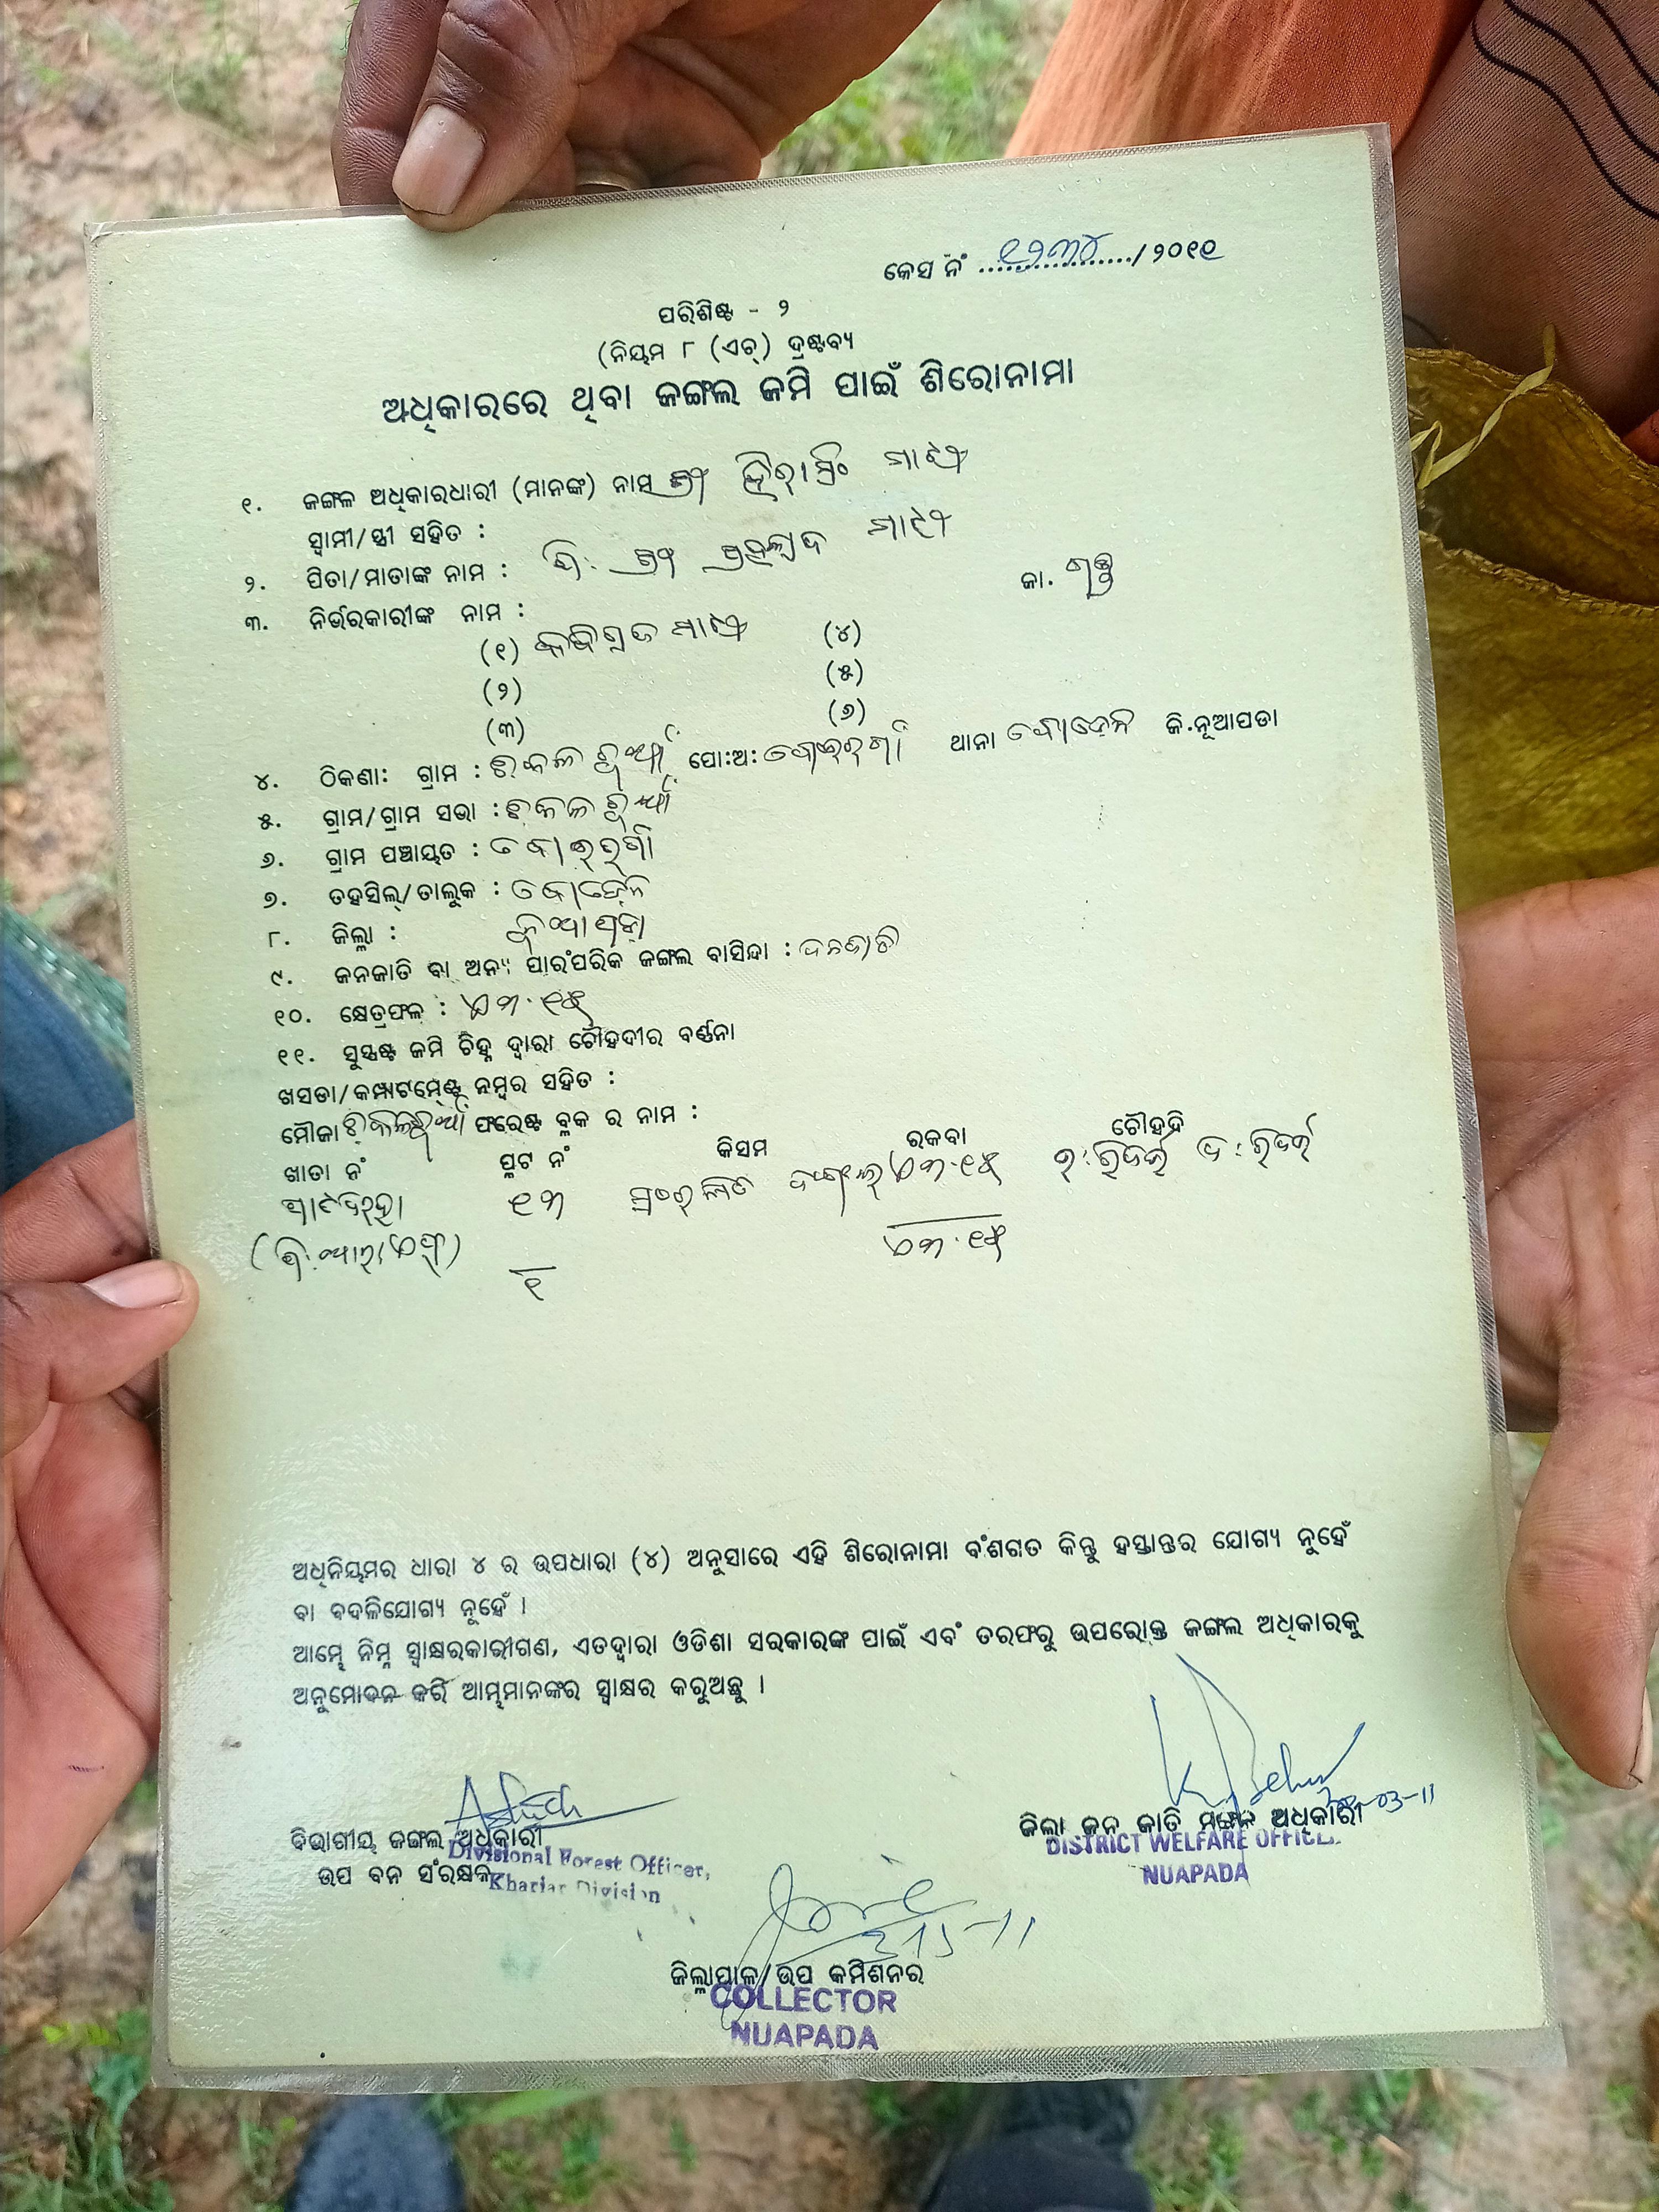 କେସ ନଂ ୧୨୩୪/୨୦୧୧
ପରିଶିଷ୍ଟ - ୨
(ନିୟମ ୮ (ଏଚ୍) ଦ୍ରଷ୍ଟବ୍ୟ
ଅଧିକାରରେ ଥିବା ଜଙ୍ଗଲ ଜମି ପାଇଁ ଶିରୋନାମା
୧. ଜଙ୍ଗଳ ଅଧିକାରଧାରୀ (ମାନଙ୍କ) ନାମ ହିରାସିଂ ମାଝୀ
ସ୍ୱାମୀ/ସ୍ତ୍ରୀ ସହିତ :
୨. ପିତା/ମାତାଙ୍କ ନାମ : ପି: ପ୍ରହଲ୍ଲାଦ ମାଝୀ
ଜା. ଗଣ୍ଡ
୩. ନିର୍ଭରକାରୀଙ୍କ ନାମ :
(୧) ମାଝୀ (୪)
(୨) (୫)
(୩) (୬)
୪. ଠିକଣା: ଗ୍ରାମ : ପୋ:ଅ: ଥାନା ବୋଡେନ ଜି.ନୂଆପଡା
୫. ଗ୍ରାମ/ଗ୍ରାମ ସଭା :
୬. ଗ୍ରାମ ପଞ୍ଚାୟତ :
୭. ତହସିଲ୍/ତାଲୁକ : ବୋଡେନ
୮. ଜିଲ୍ଲା : ନୂଆପଡା
୯. ଜନଜାତି ବା ଅନ୍ୟ ପାରଂପରିକ ଜଙ୍ଗଲ ବାସିନ୍ଦା : ଜନଜାତି
୧୦. କ୍ଷେତ୍ରଫଳ : ଏ୩.୧୫
୧୧. ସୁସ୍ପଷ୍ଟ ଜମି ଚିହ୍ନ ଦ୍ୱାରା ଚୌହଦୀର ବର୍ଣ୍ଣନା
ଖସଡା/କମ୍ପାଟମେଣ୍ଟ ନମ୍ବର ସହିତ :
ମୌଜା ଫରେଷ୍ଟ ବ୍ଲକ ର ନାମ :
ଖାତା ନଂ ପ୍ଳଟ ନଂ କିସମ ରକବା ଚୌହଦି
୧୩ ଜଙ୍ଗଲ ଏ୩.୧୫ ଉ:ରିଜର୍ଭ ଦ:ରିଜର୍ଭ
୧ ଏ୩.୧୫
ଅଧିନିୟମର ଧାରା ୪ ର ଉପଧାରା (୪) ଅନୁସାରେ ଏହି ଶିରୋନାମା ବଂଶଗତ କିନ୍ତୁ ହସ୍ତାନ୍ତର ଯୋଗ୍ୟ ନୁହେଁ
ବା ବଦଳିଯୋଗ୍ୟ ନୁହେଁ ।
ଆମ୍ଭେ ନିମ୍ନ ସ୍ୱାକ୍ଷରକାରୀଗଣ, ଏତଦ୍ୱାରା ଓଡିଶା ସରକାରଙ୍କ ପାଇଁ ଏବଂ ତରଫରୁ ଉପରୋକ୍ତ ଜଙ୍ଗଲ ଅଧିକାରକୁ
ଅନୁମୋଦନ କରି ଆମ୍ଭମାନଙ୍କର ସ୍ୱାକ୍ଷର କରୁଅଛୁ ।
ବିଭାଗୀୟ ଜଙ୍ଗଲ ଅଧିକାରୀ
Divisional Forest Officer,
ଉପ ବନ ସଂରକ୍ଷକ
Khariar Division
ଜିଲା ଜନ ଜାତି ମଙ୍ଗଳ ଅଧିକାରୀ
DISTRICT WELFARE OFFICER
NUAPADA
ଜିଲ୍ଲାପାଳ/ଉପ କମିଶନର
COLLECTOR
NUAPADA